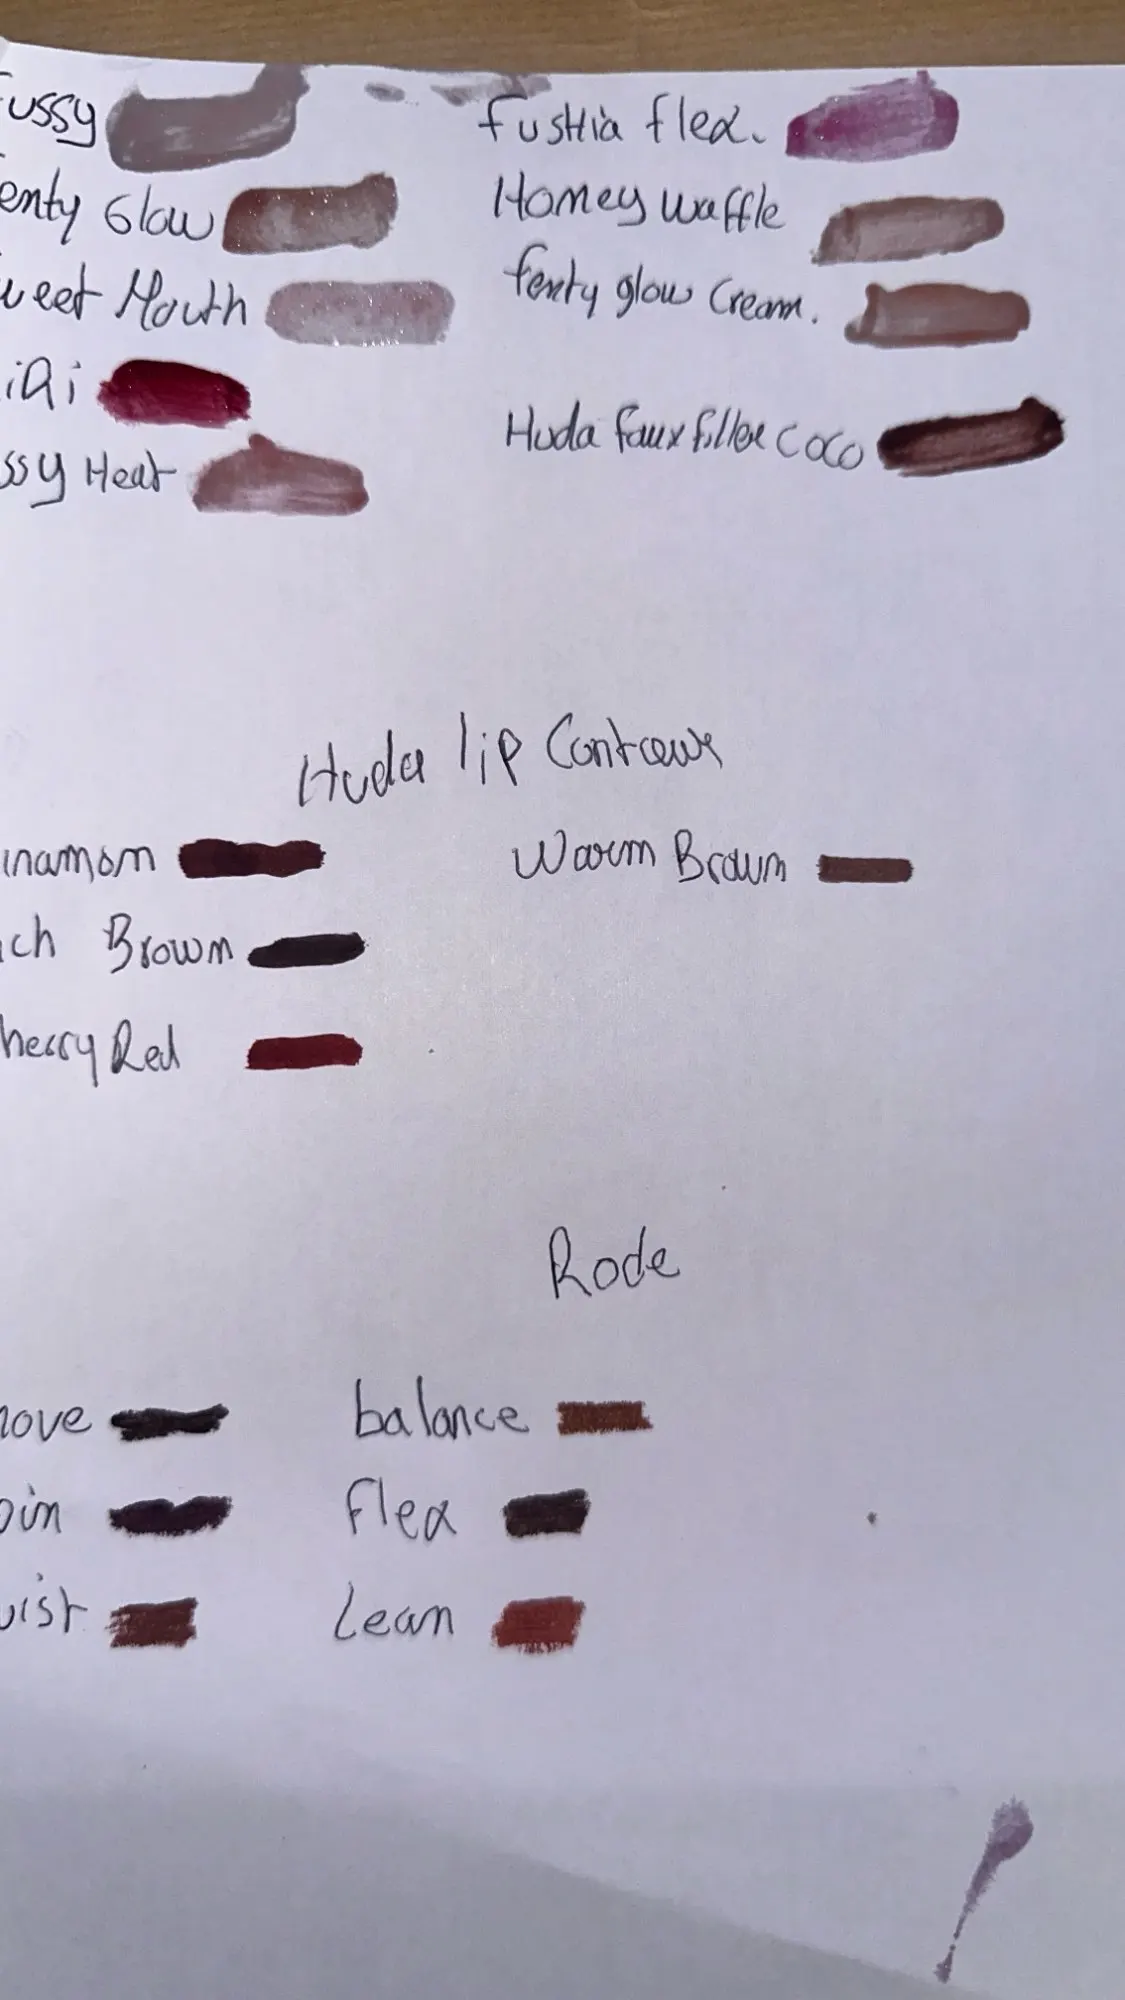 Fussy
enty Glow
weet Mouth
iRi
ssy Heat
Fushia flex.
Honey waffle
Fenty glow Cream.
Huda Faux filler Coco
Huda lip Contour
innamon
ich Brown
herry Red
Warm Brown
Rode
move
pin
wist
balance
flex
Lean